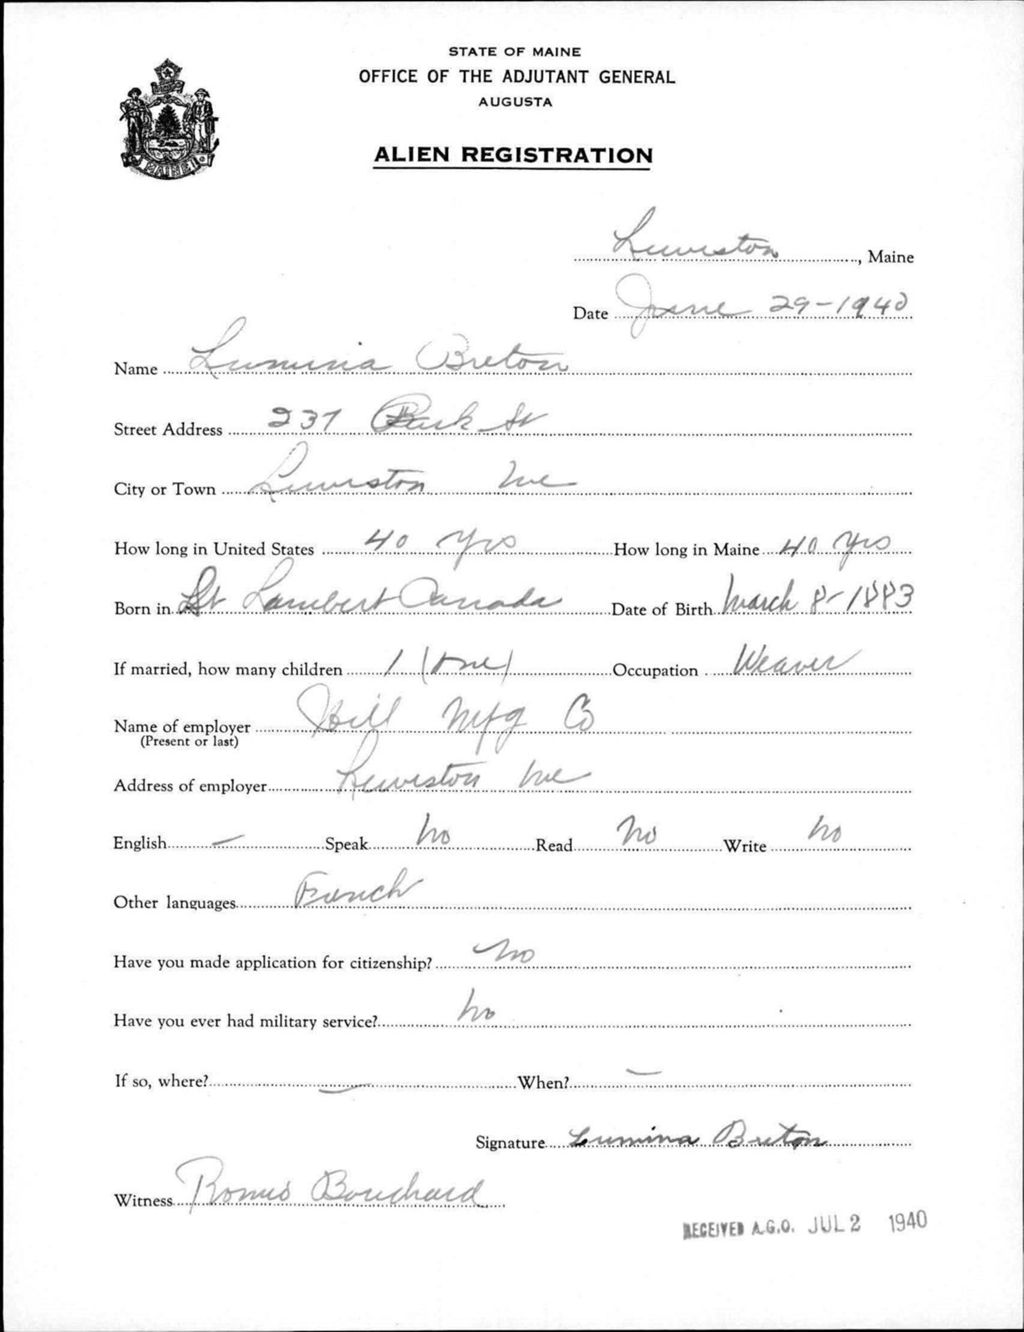 STATE OF MAINE
OFFICE OF THE ADJUTANT GENERAL
AUGUSTA
ALIEN REGISTRATION
MAINE
Lewiston, Maine
Date June 29-1940
Name Lumina Breton
Street Address 237 Park St
City or Town Lewiston Me
How long in United States 40 yrs How long in Maine 40 yrs
Born in St Lambert Canada Date of Birth March 8-1883
If married, how many children 1 (one) Occupation Weaver
Name of employer Hill Mfg Co
(Present or last)
Address of employer Lewiston Me
English - Speak No Read No Write No
Other languages French
Have you made application for citizenship? No
Have you ever had military service? No
If so, where? - When? -
Signature Lumina Breton
Witness Romeo Bouchard
RECEIVED A.G.O. JUL 2 1940